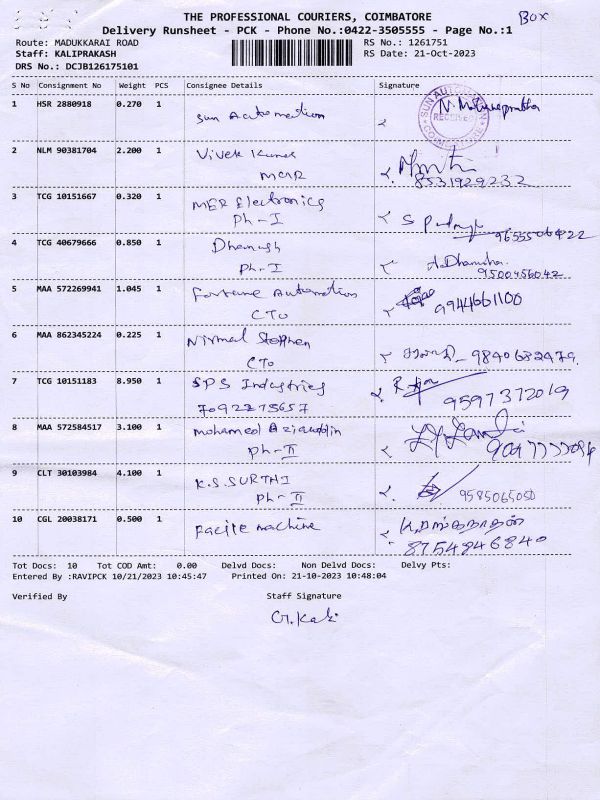 THE PROFESSIONAL COURIERS, COIMBATORE
BOX
Delivery Runsheet - PCK - Phone No.:0422-3505555 - Page No.:1
Route: MADUKKARAI ROAD
RS No.: 1261751
Staff: KALIPRAKASH
RS Date: 21-Oct-2023
DRS No.: DCJB126175101
S No Consignment No Weight PCS Consignee Details Signature
1 HSR 2880918 0.270 1 Sun Automation
SUN AUTOMATION RECEIVED COIMBATORE
2 NLM 90381704 2.200 1 Vivek Kumar
MCR
8531929232
3 TCG 10151667 0.320 1 MER Electronics
Ph-I
9655506422
4 TCG 40679666 0.850 1 Dhanush
Ph-I
9500456042
5 MAA 572269941 1.045 1 Fortune Automation
CTO
9944661100
6 MAA 862345224 0.225 1 Nirmal Stephen
CTO
9840632479
7 TCG 10151183 8.950 1 SPS Industries
7092275657
9597372019
8 MAA 572584517 3.100 1 Mohamed
Ph-II
9 CLT 30103984 4.100 1 K.S.SURTHI
Ph-II
9585065050
10 CGL 20038171 0.500 1 Facile machine
8754846840
Tot Docs: 10 Tot COD Amt: 0.00 Delvd Docs: Non Delvd Docs: Delvy Pts:
Entered By :RAVIPCK 10/21/2023 10:45:47 Printed On: 21-10-2023 10:48:04
Verified By Staff Signature
G.Kali